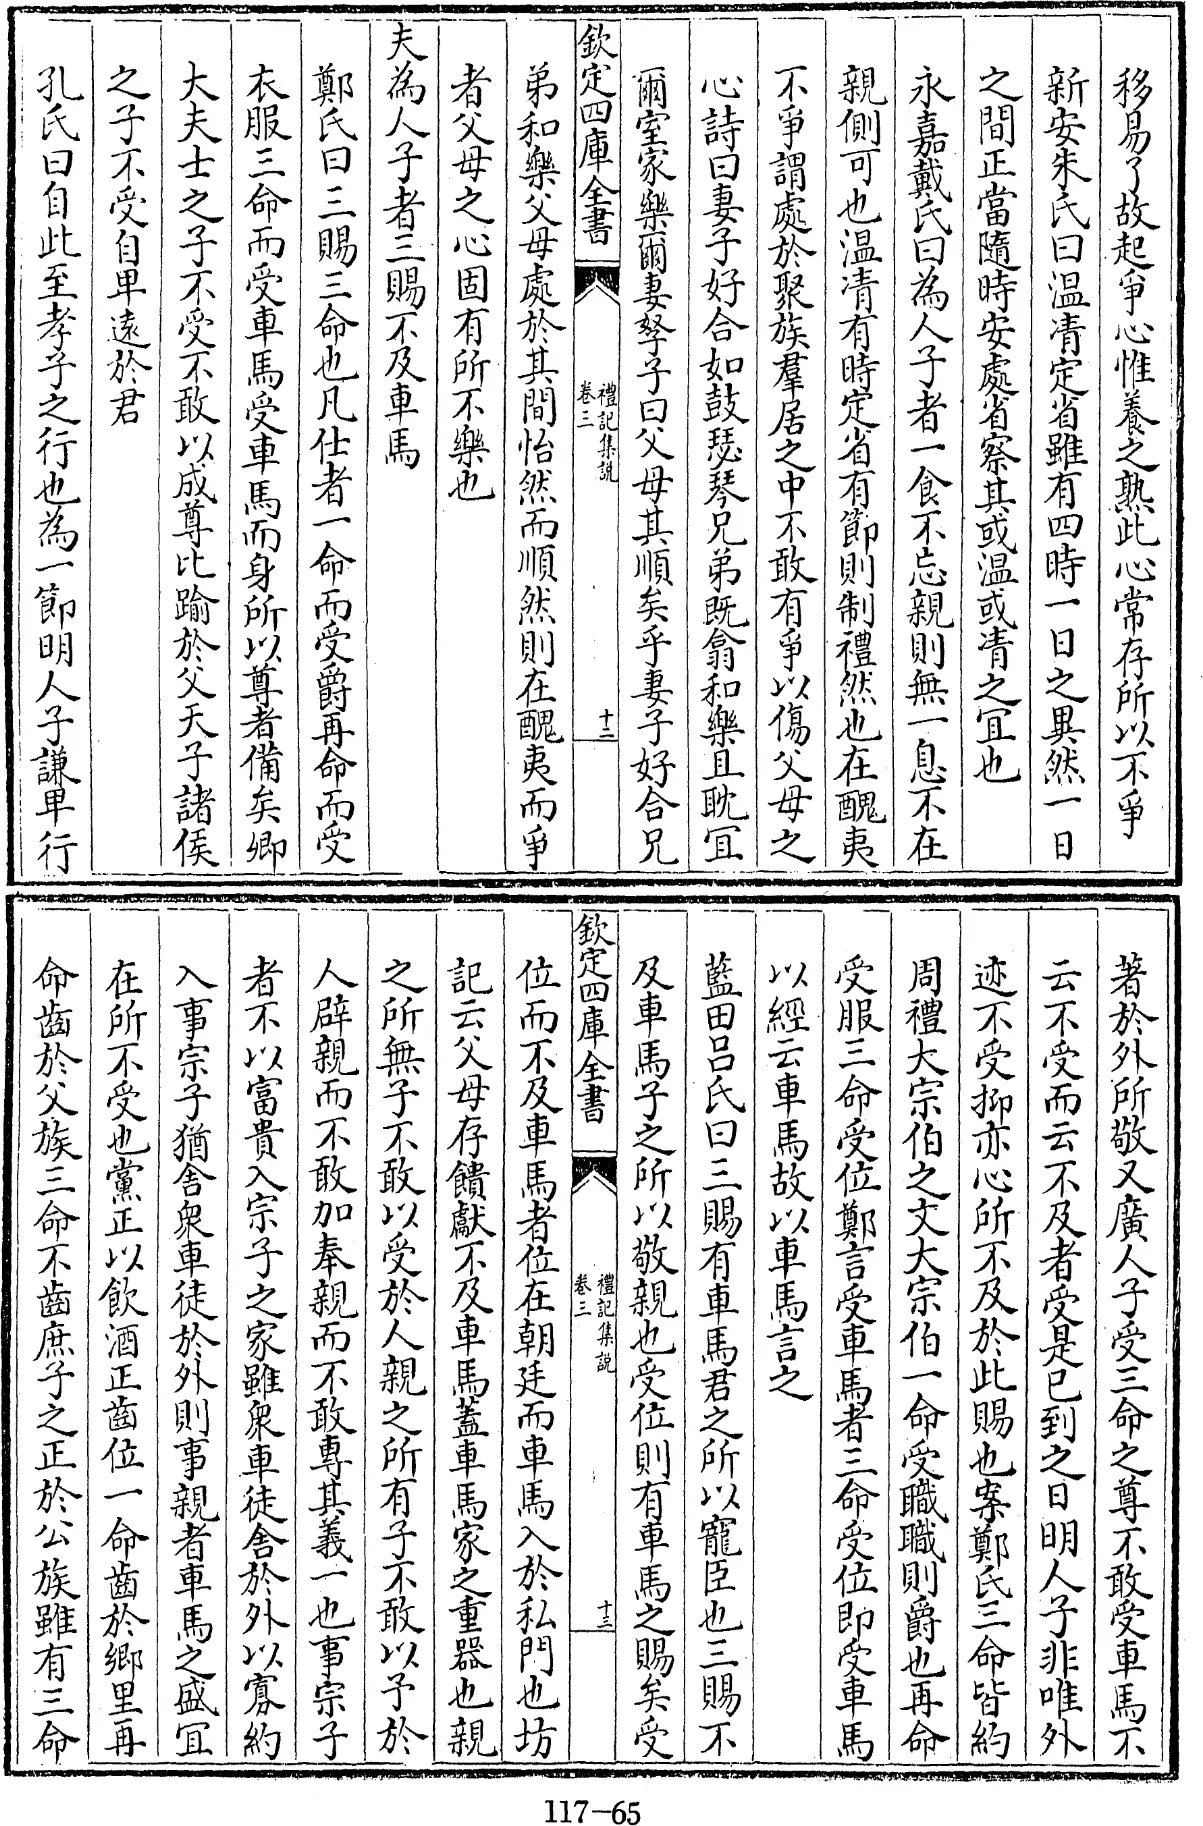 移易了故起爭心惟養之熟此心常存所以不爭
新安朱氏曰温凊定省雖有四時一日之異然一日
之間正當隨時安處省察其或温或凊之宜也
永嘉戴氏曰為人子者一食不忘親則無一息不在
親側可也温凊有時定省有節則制禮然也在醜夷
不爭謂處於聚族羣居之中不敢有爭以傷父母之
心詩曰妻子好合如鼓瑟琴兄弟既翕和樂且耽宜
爾室家樂爾妻孥子曰父母其順矣乎妻子好合兄
欽定四庫全書
禮記集說
卷三
十二
弟和樂父母處於其間怡然而順然則在醜夷而爭
者父母之心固有所不樂也
夫為人子者三賜不及車馬
鄭氏曰三賜三命也凡仕者一命而受爵再命而受
衣服三命而受車馬受車馬而身所以尊者備矣卿
大夫士之子不受不敢以成尊比踰於父天子諸侯
之子不受自卑遠於君
孔氏曰自此至孝子之行也為一節明人子謙卑行
著於外所敬又廣人子受三命之尊不敢受車馬不
云不受而云不及者受是已到之日明人子非唯外
迹不受抑亦心所不及於此賜也案鄭氏三命皆約
周禮大宗伯之文大宗伯一命受職職則爵也再命
受服三命受位鄭言受車馬者三命受位即受車馬
以經云車馬故以車馬言之
藍田呂氏曰三賜有車馬君之所以寵臣也三賜不
及車馬子之所以敬親也受位則有車馬之賜矣受
欽定四庫全書
禮記集說
卷三
十三
位而不及車馬者位在朝廷而車馬入於私門也坊
記云父母存饋獻不及車馬蓋車馬家之重器也親
之所無子不敢以受於人親之所有子不敢以予於
人辟親而不敢加奉親而不敢專其義一也事宗子
者不以富貴入宗子之家雖衆車徒舍於外以寡約
入事宗子猶舍衆車徒於外則事親者車馬之盛宜
在所不受也黨正以飲酒正齒位一命齒於鄉里再
命齒於父族三命不齒庶子之正於公族雖有三命
117-65